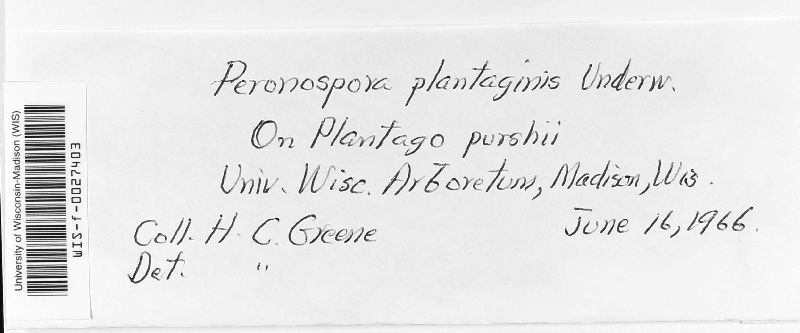 Peronospora plantaginis Underw.
On Plantago purshii
Univ. Wisc. Arboretum, Madison, Wis.
Coll. H. C. Greene June 16, 1966.
Det. "
University of Wisconsin-Madison (WIS)
WIS-f-0027403